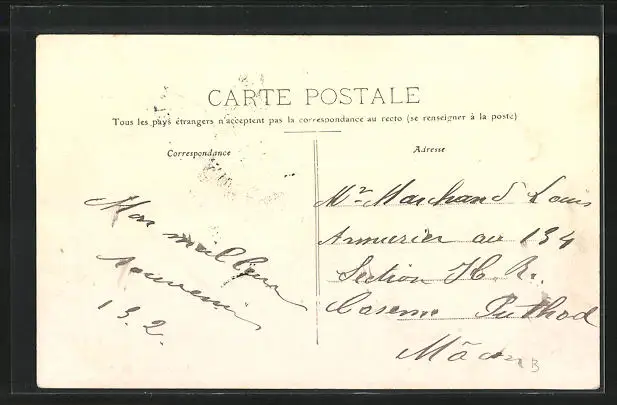 CARTE POSTALE
Tous les pays étrangers n'acceptent pas la correspondance au recto (se renseigner à la poste)
Correspondance
Mon meilleur
souvenir
13.2.
Adresse
Mr Marchand Louis
Armurier au 134
Section H. R.
Caserne Puthod
Mâcon